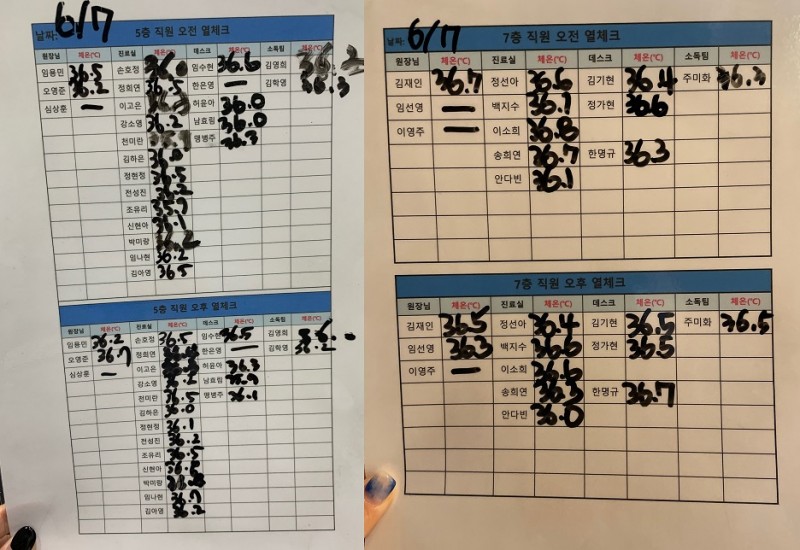 날짜: 6/7 5층 직원 오전 열체크
원장님 체온(℃) 진료실 체온(℃) 데스크 체온(℃) 소독팀 체온(℃)
임용민 36.5 손호정 36.0 임수현 36.6 김영희 36.2
오영준 36.2 정희연 36.5 한은영 — 김학영 36.3
심상훈 — 이고은 36.3 허윤아 36.0
강소영 36.2 남효림 36.0
천미란 명병주 36.3
김하은
정현정 36.5
전성진 36.2
조유리 35.9
신현아 36.1
박미랑 36.2
임나현 36.2
김아영 36.5
5층 직원 오후 열체크
원장님 체온(℃) 진료실 체온(℃) 데스크 체온(℃) 소독팀 체온(℃)
임용민 36.2 손호정 36.5 임수현 36.5 김영희
오영준 36.7 정희연 한은영 — 김학영 36.2
심상훈 — 이고은 허윤아 36.3
강소영 36.2 남효림 35.9
천미란 36.5 명병주 36.1
김하은 36.0
정현정 36.1
전성진 36.2
조유리 36.5
신현아 36.5
박미랑
임나현 36.7
김아영 36.2
날짜: 6/7 7층 직원 오전 열체크
원장님 체온(℃) 진료실 체온(℃) 데스크 체온(℃) 소독팀 체온(℃)
김재인 36.7 정선아 36.6 김기현 36.4 주미화 36.3
임선영 — 백지수 36.7 정가현 36.6
이영주 — 이소희 36.8
송희연 36.7 한명규 36.3
안다빈 36.1
7층 직원 오후 열체크
원장님 체온(℃) 진료실 체온(℃) 데스크 체온(℃) 소독팀 체온(℃)
김재인 36.5 정선아 36.4 김기현 36.5 주미화 36.5
임선영 36.3 백지수 36.6 정가현 36.5
이영주 — 이소희 36.6
송희연 36.5 한명규 36.7
안다빈 36.0